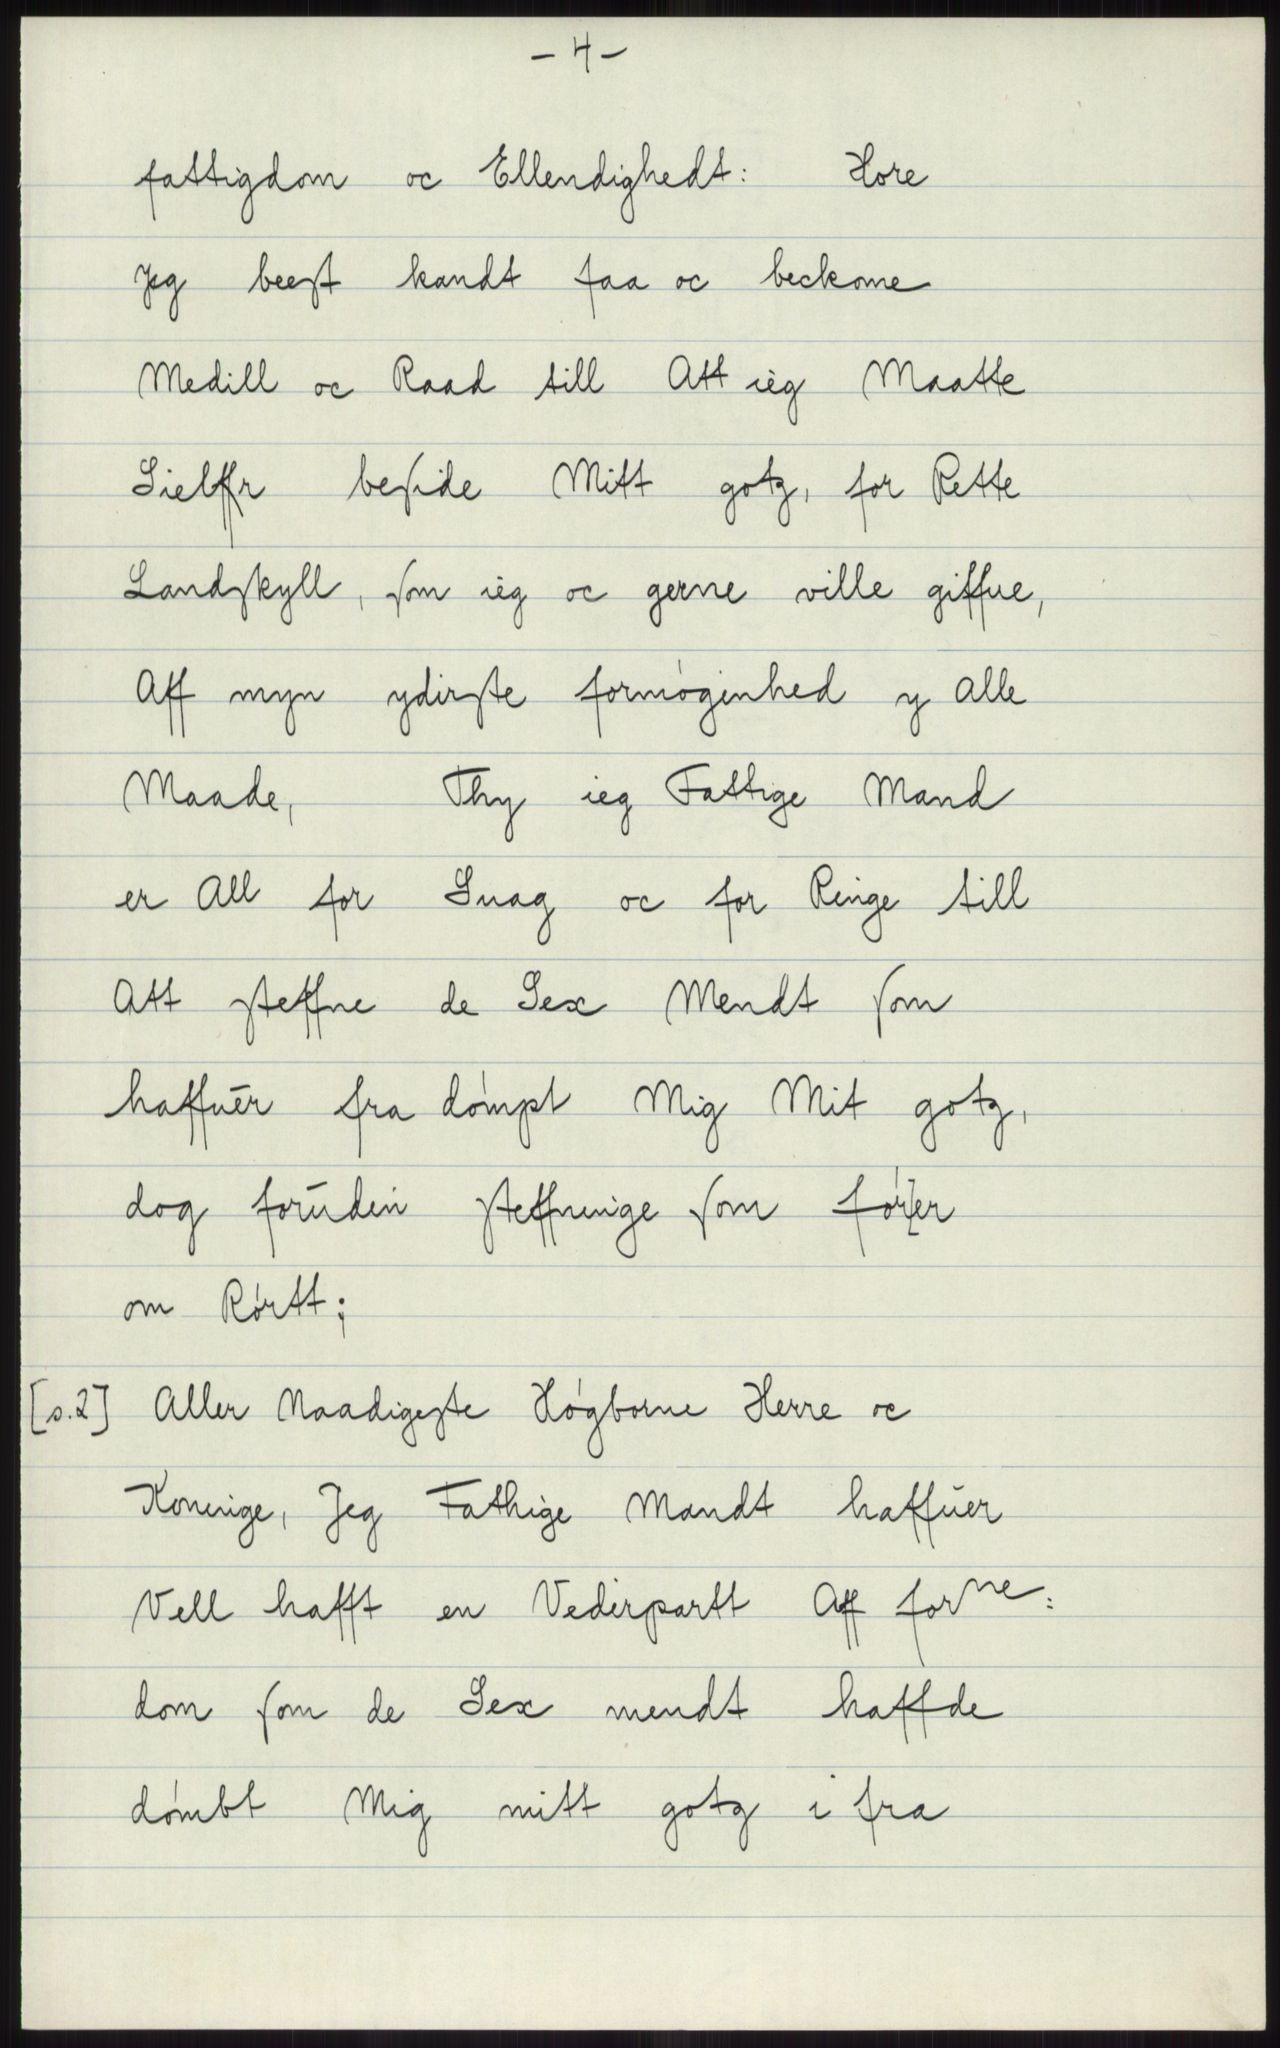 - 4 -
fattigdom oc Ellendighedt: Hore
Jeg beest kandt faa oc beckome
Medill oc Raad till Att ieg Maatte
Sielffr beſide Mitt gotz, for Rette
Landſkyll, ſom ieg oc gerne ville giffue,
Aff myn ydirſte formógenhed y Alle
Maade, Thy ieg Fattige Mand
er All for Suag oc for Ringe till
Att ſteffne de Sex Mendt ſom
haffuēr fra dómpt Mig Mit gotz,
dog forūden ſteffninge ſom fór
om Rórtt;
[s.2] Aller Naadigeſte Hógborne Herre oc
Koninge, Jeg Fathige Mandt haffūer
Vell hafft en Vederpartt Aff forne:
dom ſom de Sex mendt haffde
dómbt Mig mitt gotz i fra